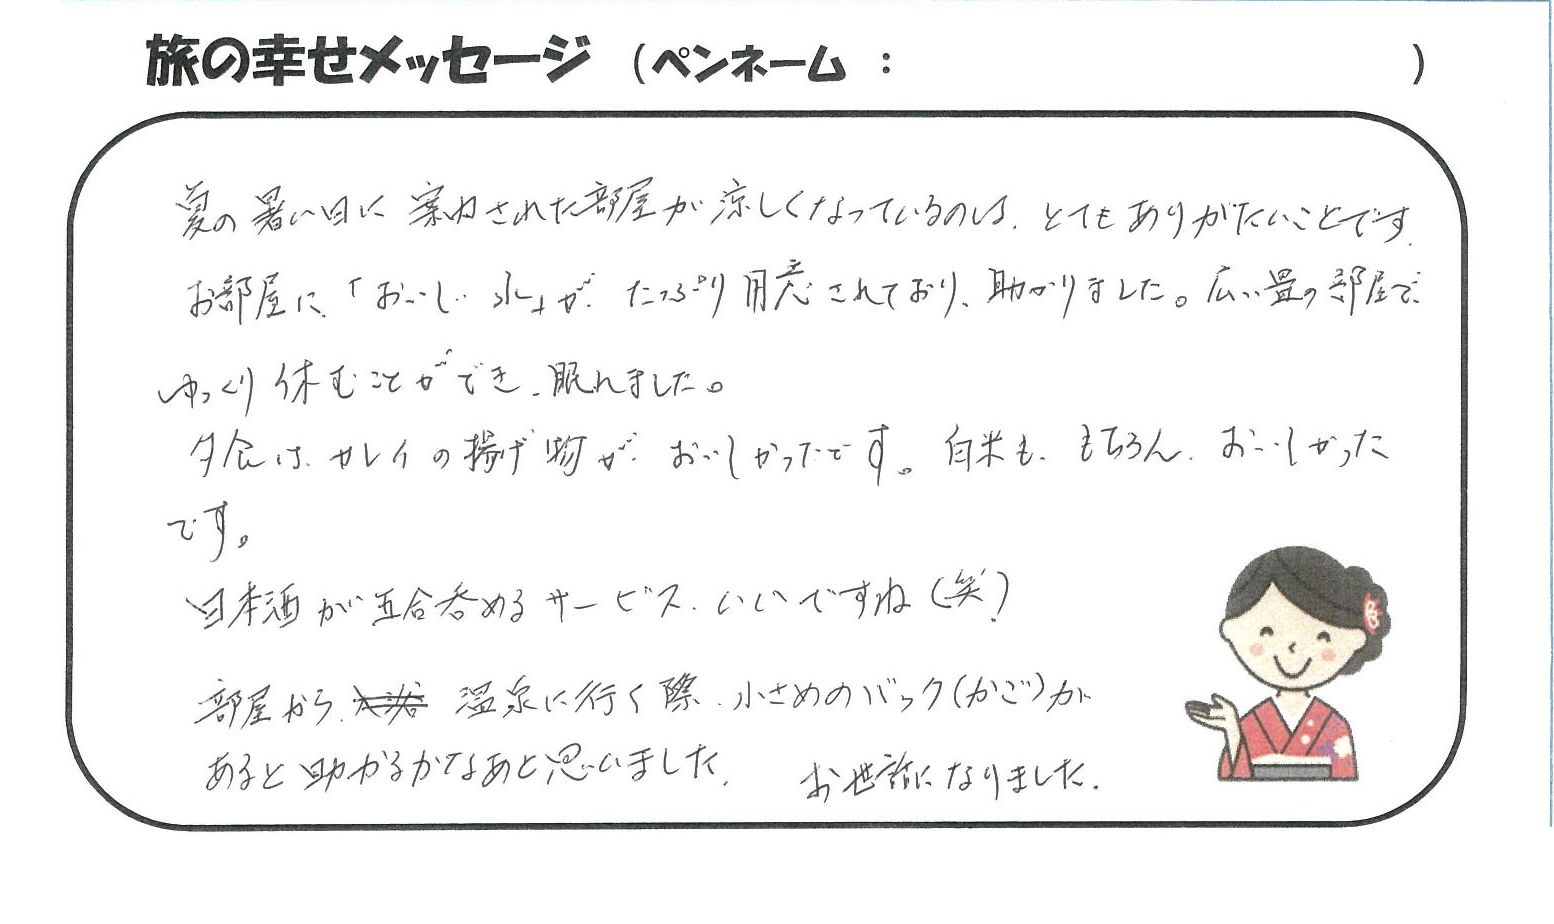 旅の幸せメッセージ (ペンネーム : )
夏の暑い日に 案内された部屋が涼しくなっているのは、とてもありがたいことです。
お部屋に、「おいしい水」が、たっぷり用意されており、助かりました。広い畳の部屋で、
ゆっくり休むことができ、眠れました。
夕食は、カレイの揚げ物が、おいしかったです。白米も、もちろん、おいしかった
です。
日本酒が五合呑めるサービス、いいですね(笑)
部屋から、温泉に行く際、小さめのバック(かご)が
あると助かるかなあと思いました。 お世話になりました。